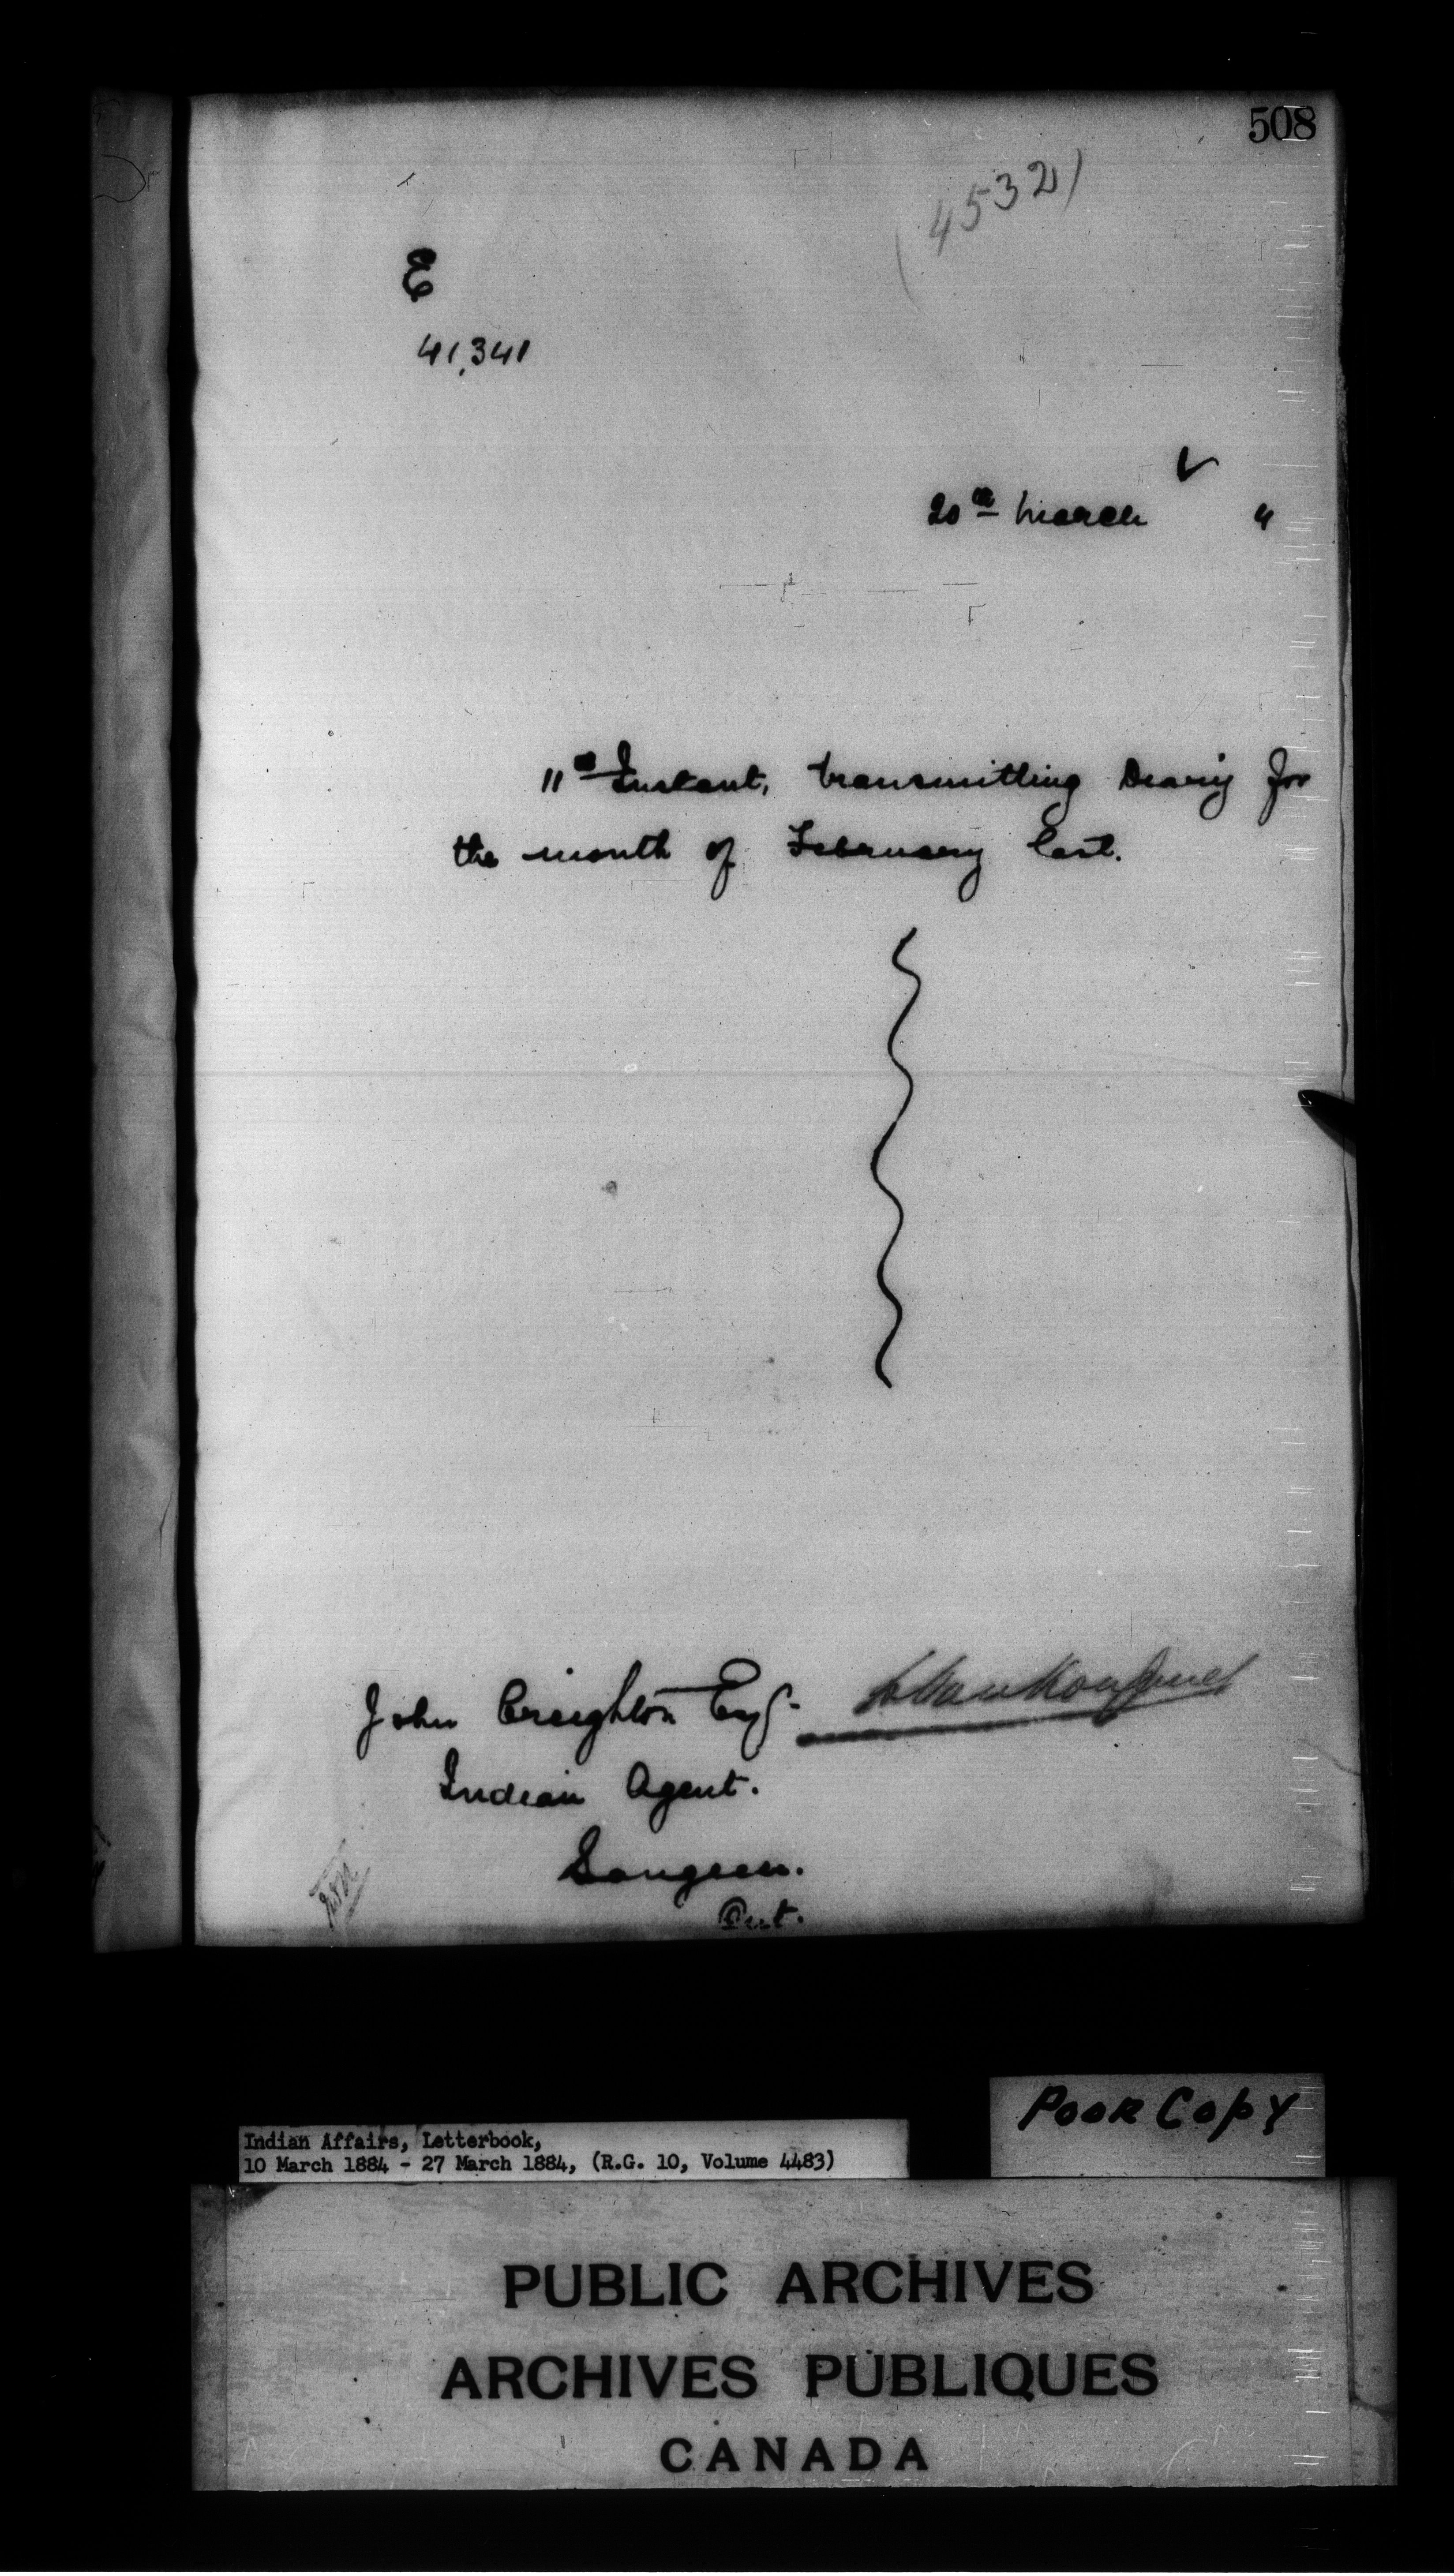 508
(4532)
E
41,341
20th March "
11th Instant, transmitting Diary for
the month of February last.
L VanKoughnet
John Creighton Esq.
Indian Agent.
Saugeen.
Ont.
Poor Copy
Indian Affairs, Letterbook,
10 March 1884 - 27 March 1884, (R.G. 10, Volume 4483)
PUBLIC ARCHIVES
ARCHIVES PUBLIQUES
CANADA